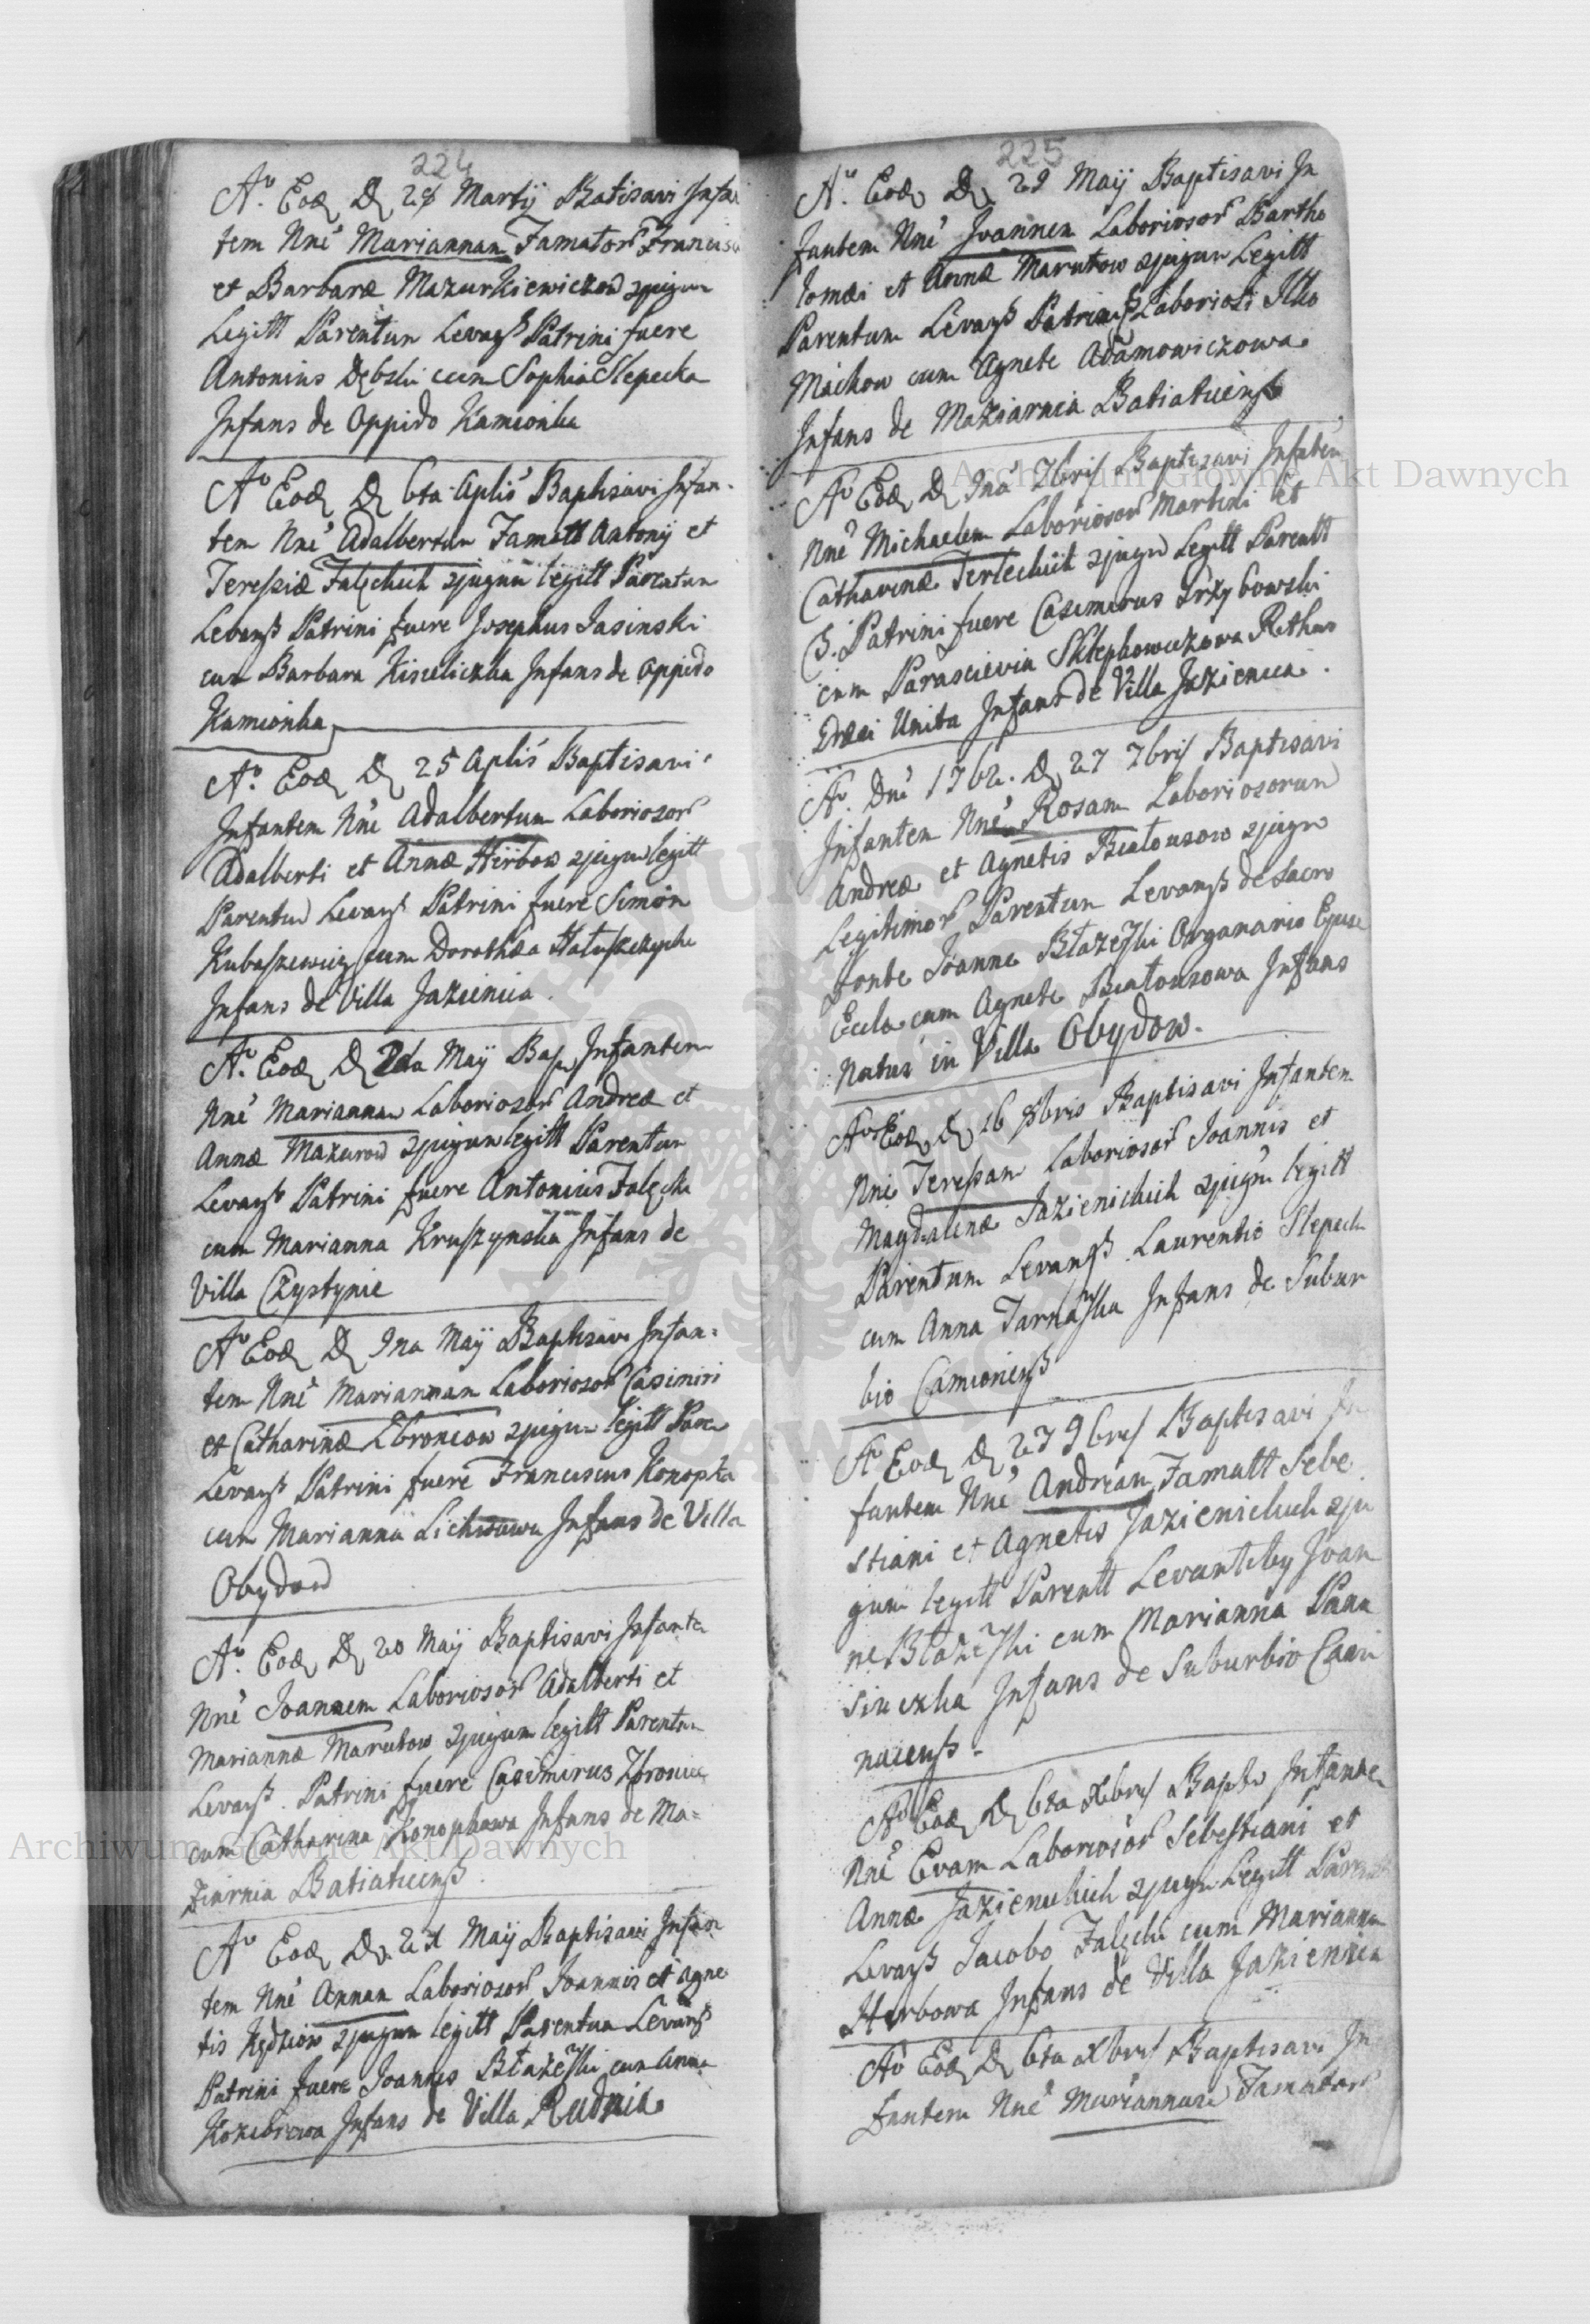 224
Aº Eod D 28 Martij Batisavi Infan
tem Nnē Mariannam Famator Francisci
et Barbaræ Mazurkiewiczow cjugum
Legitt Parentun Levanß Patrini fuere
Antonius Dębski cum Sophia Slepecka
Infans de Oppido Kamionka
Aº Eod D 6ta Aplis Baptisavi Infan-
tem Nnē Adalbertum Famatt Antonij et
Teressiæ Falęckich cjugum legitt Parentun
Levanß Patrini fuere Josephus Jasinski
cum Barbara Kisieliczka Infans de Oppido
Kamionka
Aº Eod D 25 Aplis Baptisavi
Infantem Nnē Adalbertum Laboriosor
Adalberti et Annæ Hirbow cjugum legitt
Parentum Levanß Patrini fuere Simon
Kubaszewicz cum Dorothea
Infans de Villa Jazienica
Aº Eod D 2da Maij Bap Infantem
Nnē Mariannam Laboriosor Andreæ et
Annæ Mazurow cjugum legitt Parentun
Levanß Patrini fuere Antonius Falęcki
cum Marianna Kruszynska Infans de
Villa Czystynie
Aº Eod D 9na Maij Baptisavi Infan=
tem Nnē Mariannam Laboriosor Casimiri
et Catharinæ Zbroniow cjugum legitt Paren
Levanß Patrini fuere Franciscus Konopka
cum Marianna Infans de Villa
Obydow
Aº Eod D 20 Maij Baptisavi Infante
Nnē Joannem Laboriosor Adalberti et
Mariannæ Marutow cjugum legitt Parentun
Levanß Patrini fuere Casimirus Zbronia
cum Catharina Konopkowa Infans de Ma=
ziarnia Batiaticenß
Aº Eod D Maij Baptisavi Infan
tem Nnē Annam Laboriosor Joannis et Agne
tis Kędziow cjugum legitt Parentum Levanß
Patrini fuere Joannes Błażeski cum Anna
Infans de Villa Rudnia
225
Aº Eod D 29 Maij Baptisavi In
fantem Nnē Joannem Laboriosor Bartho
lomæi et Annæ Marutow cjugum Legitt
Parentum Levanß Patrinis Laboriosi Ilko
Maikow cum Agnete Adamowiczowa
Infans de Maziarnia Batiaticenß
Aº Eod D 9na 7bris Baptisavi Infantem
Nnē Michaelem Laboriosor Martini et
Catharinæ Terleckich cjugum Legitt Parentt
Patrini fuere Casimirus Grzybowski
cum Parascievia Sklepkowiczowa Rithus
Græci Unita Infans de Villa Jazienica
Aº Dnē 1762. D 27 7bris Baptisavi
Infantem Nnē Rosam Laboriosorum
Andreæ et Agnetis Białousow cjugum
Legitimor Parentun Levanß de Sacro
Fonte Joanne Błażeski Organario Ejusd
Eccla cum Agnete Białousowa Infans
Natus in Villa Obydow.
Aº Eod D 16 8bris Baptisavi Infantem
Nnē Teressam Laboriosor Joannis et
Magdalenæ Jazienickich cjugum legitt
Parentum Levanß Laurentio Slepecki
cum Anna Tarnaska Infans de Subur
bio Camionenß
Aº Eod D 27 9bris Baptisavi In
fantem Nnē Andream Famatt Sebe
stiani et Agnetis Jazienickich cju
gum legitt Parentt Levantiby Joan
ne Błażeski cum Marianna Pana
siuczka Infans de Suburbio Cami
nacenß
Aº Eod D 6ta Xbris Bapti Infantem
Nnē Evam Laboriosor Sebestiani et
Annæ Jazienickich cjugum Legitt Parent
Levanß Jacobo Falęcki cum Marianna
Hirbowa Infans de Villa Jazienica
Aº Eod D 6ta Xbris Baptisavi In
fantem Nnē Mariannam Famator
Archiwum Główne Akt Dawnych
Archiwum Główne Akt Dawnych